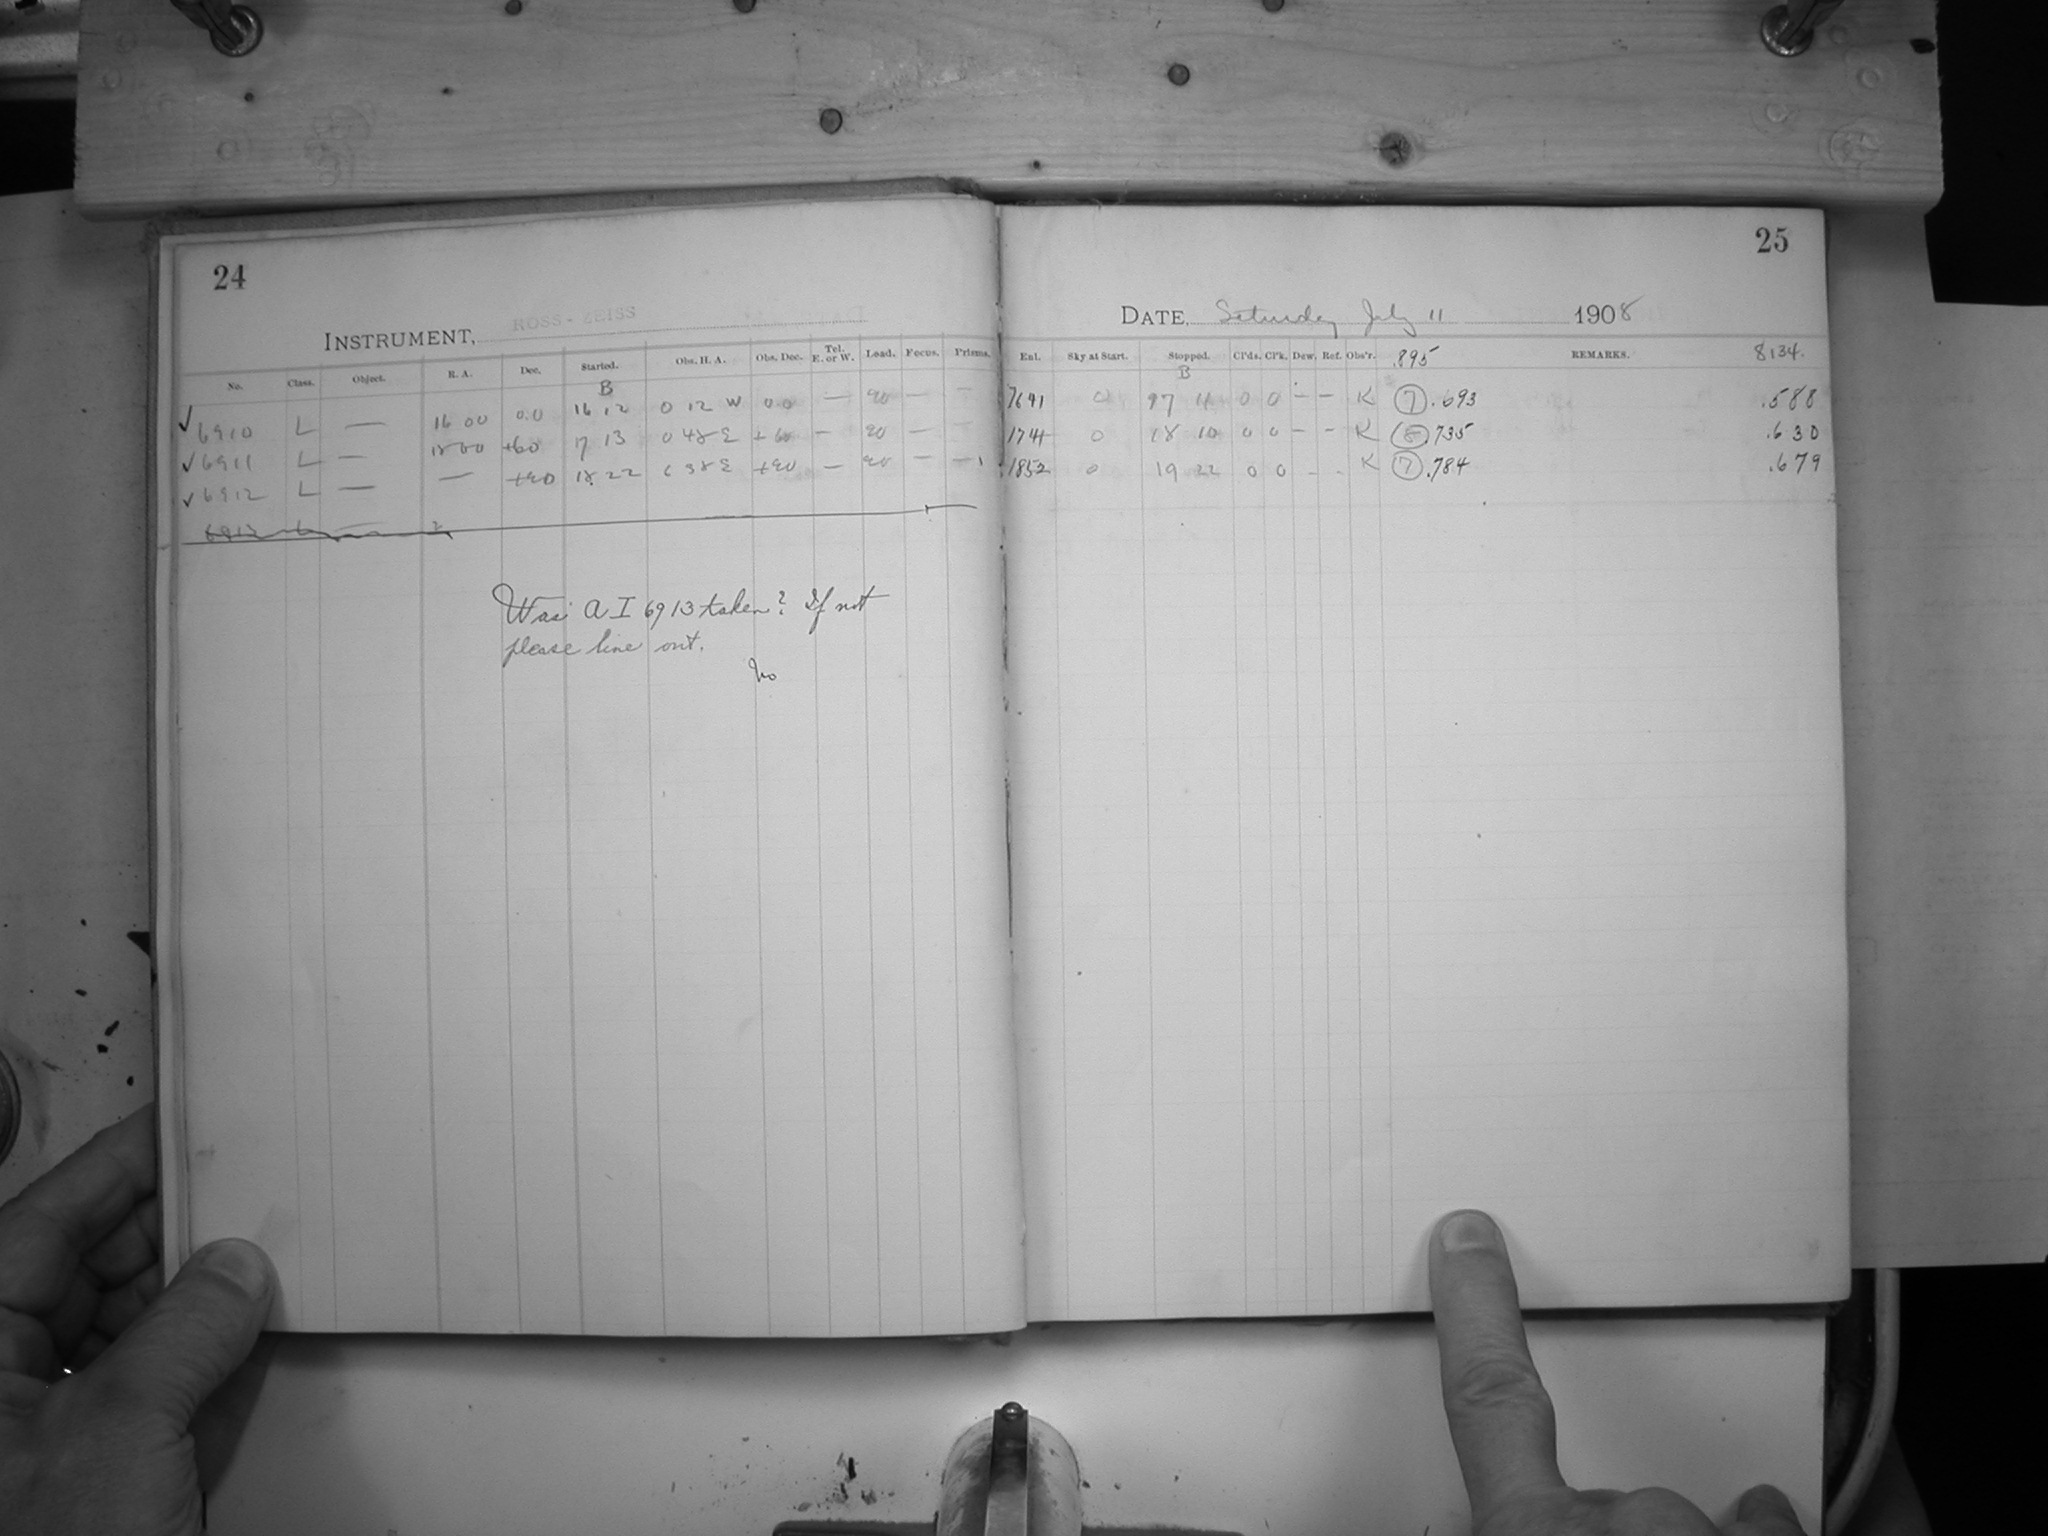 24
INSTRUMENT, ROSS-ZEISS
No. Class. Object. R. A. Dec. Started. Obs. H. A. Obs. Dec. Tel. E. or W. Load. Focus. Prisms.
B
✓ 6910 L — 16 00 00 16 12 0 12 W 00 — 90 — —
✓ 6911 L — 18 00 +60 17 13 0 48 E +60 — 90 — —
✓ 6912 L — — +90 18 22 6 38 E +90 — 90 — —
6913 L —
Was A I 6913 taken? If not
please line out.
No
25
DATE, Saturday July 11 1908
Ext. Sky at Start. Stopped. Cl'ds. Cl'k. Dew. Ref. Obs'r. .895 REMARKS. 8134.
B
0 0 0 — — K 7 .693 .588
1741 0 18 10 0 0 — — K 735 .630
1852 0 19 22 0 0 - - K 7 .784 .679